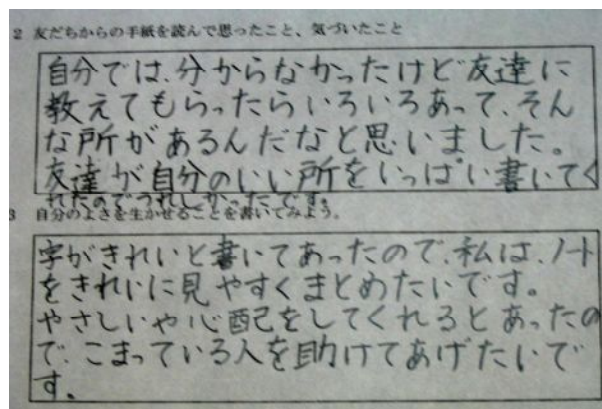 2 友だちからの手紙を読んで思ったこと、気づいたこと
自分では、分からなかったけど友達に
教えてもらったらいろいろあって、そん
な所があるんだなと思いました。
友達が自分のいい所をいっぱい書いてく
れたのでうれしかったです。
3 自分のよさを生かせることを書いてみよう。
字がきれいと書いてあったので、私は、ノート
をきれいに見やすくまとめたいです。
やさしいや心配をしてくれるとあったの
で、こまっている人を助けてあげたいで
す。